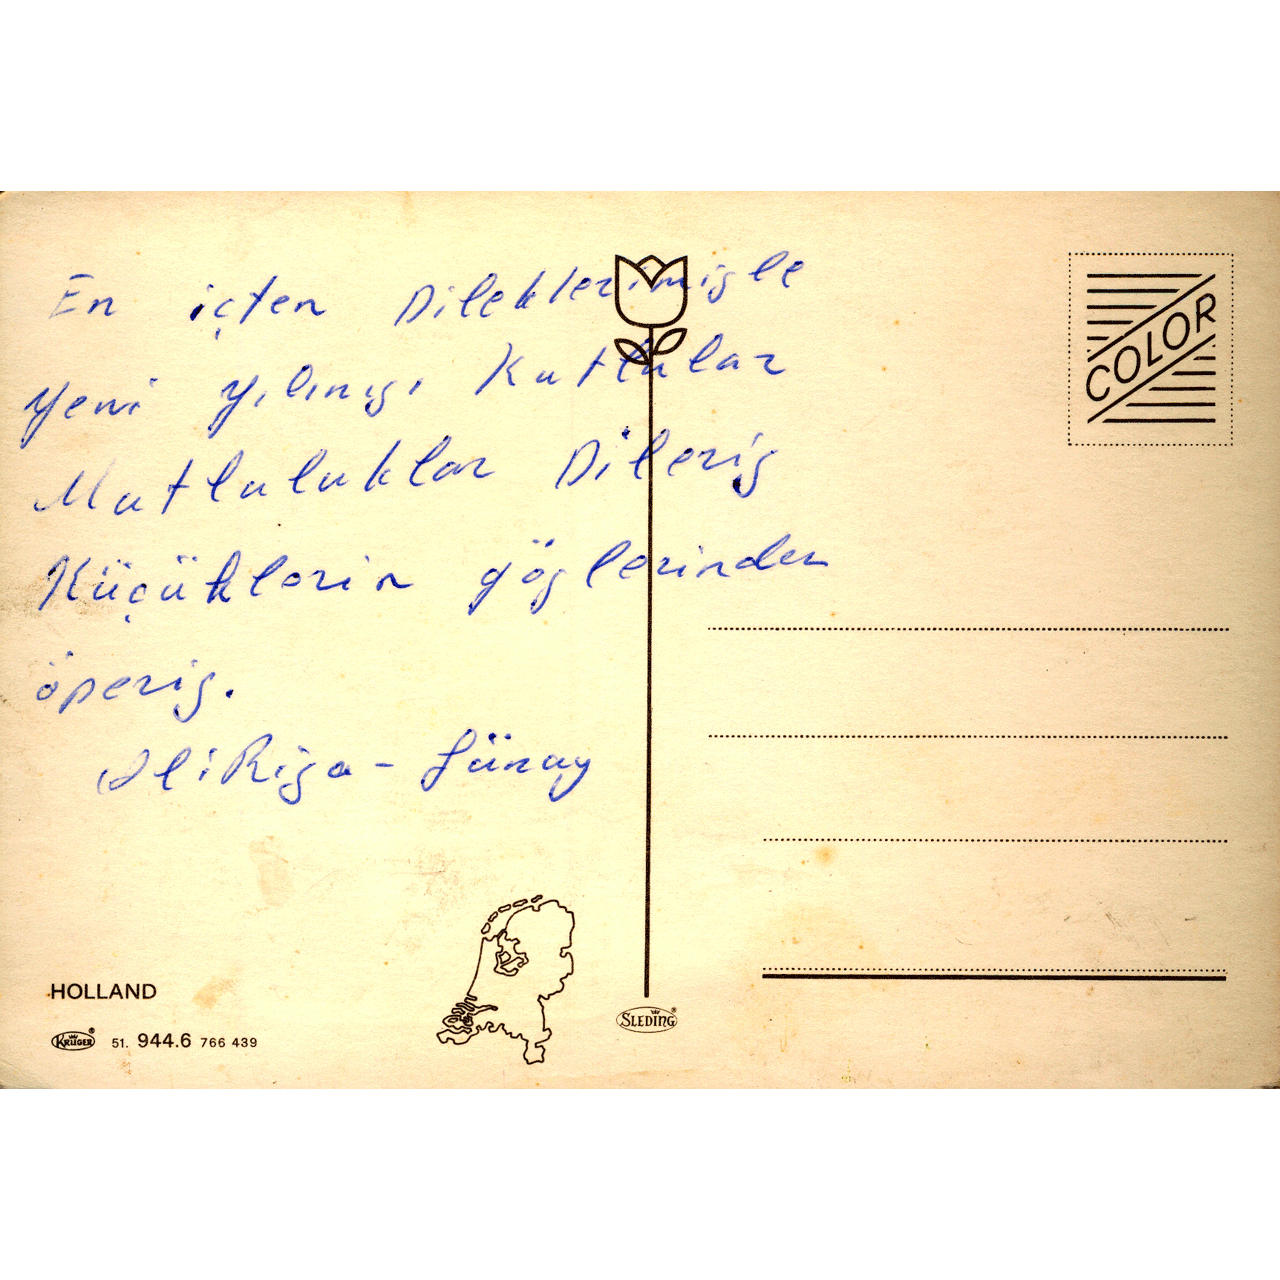 En içten Dileklerimizle
Yeni yılınızı Kutlular
Mutluluklar Dileriz
Küçüklerin gözlerinden
öperiz.
Ali Rıza - Günay
COLOR
HOLLAND
KRÜGER 51. 944.6 766 439
SLEDING